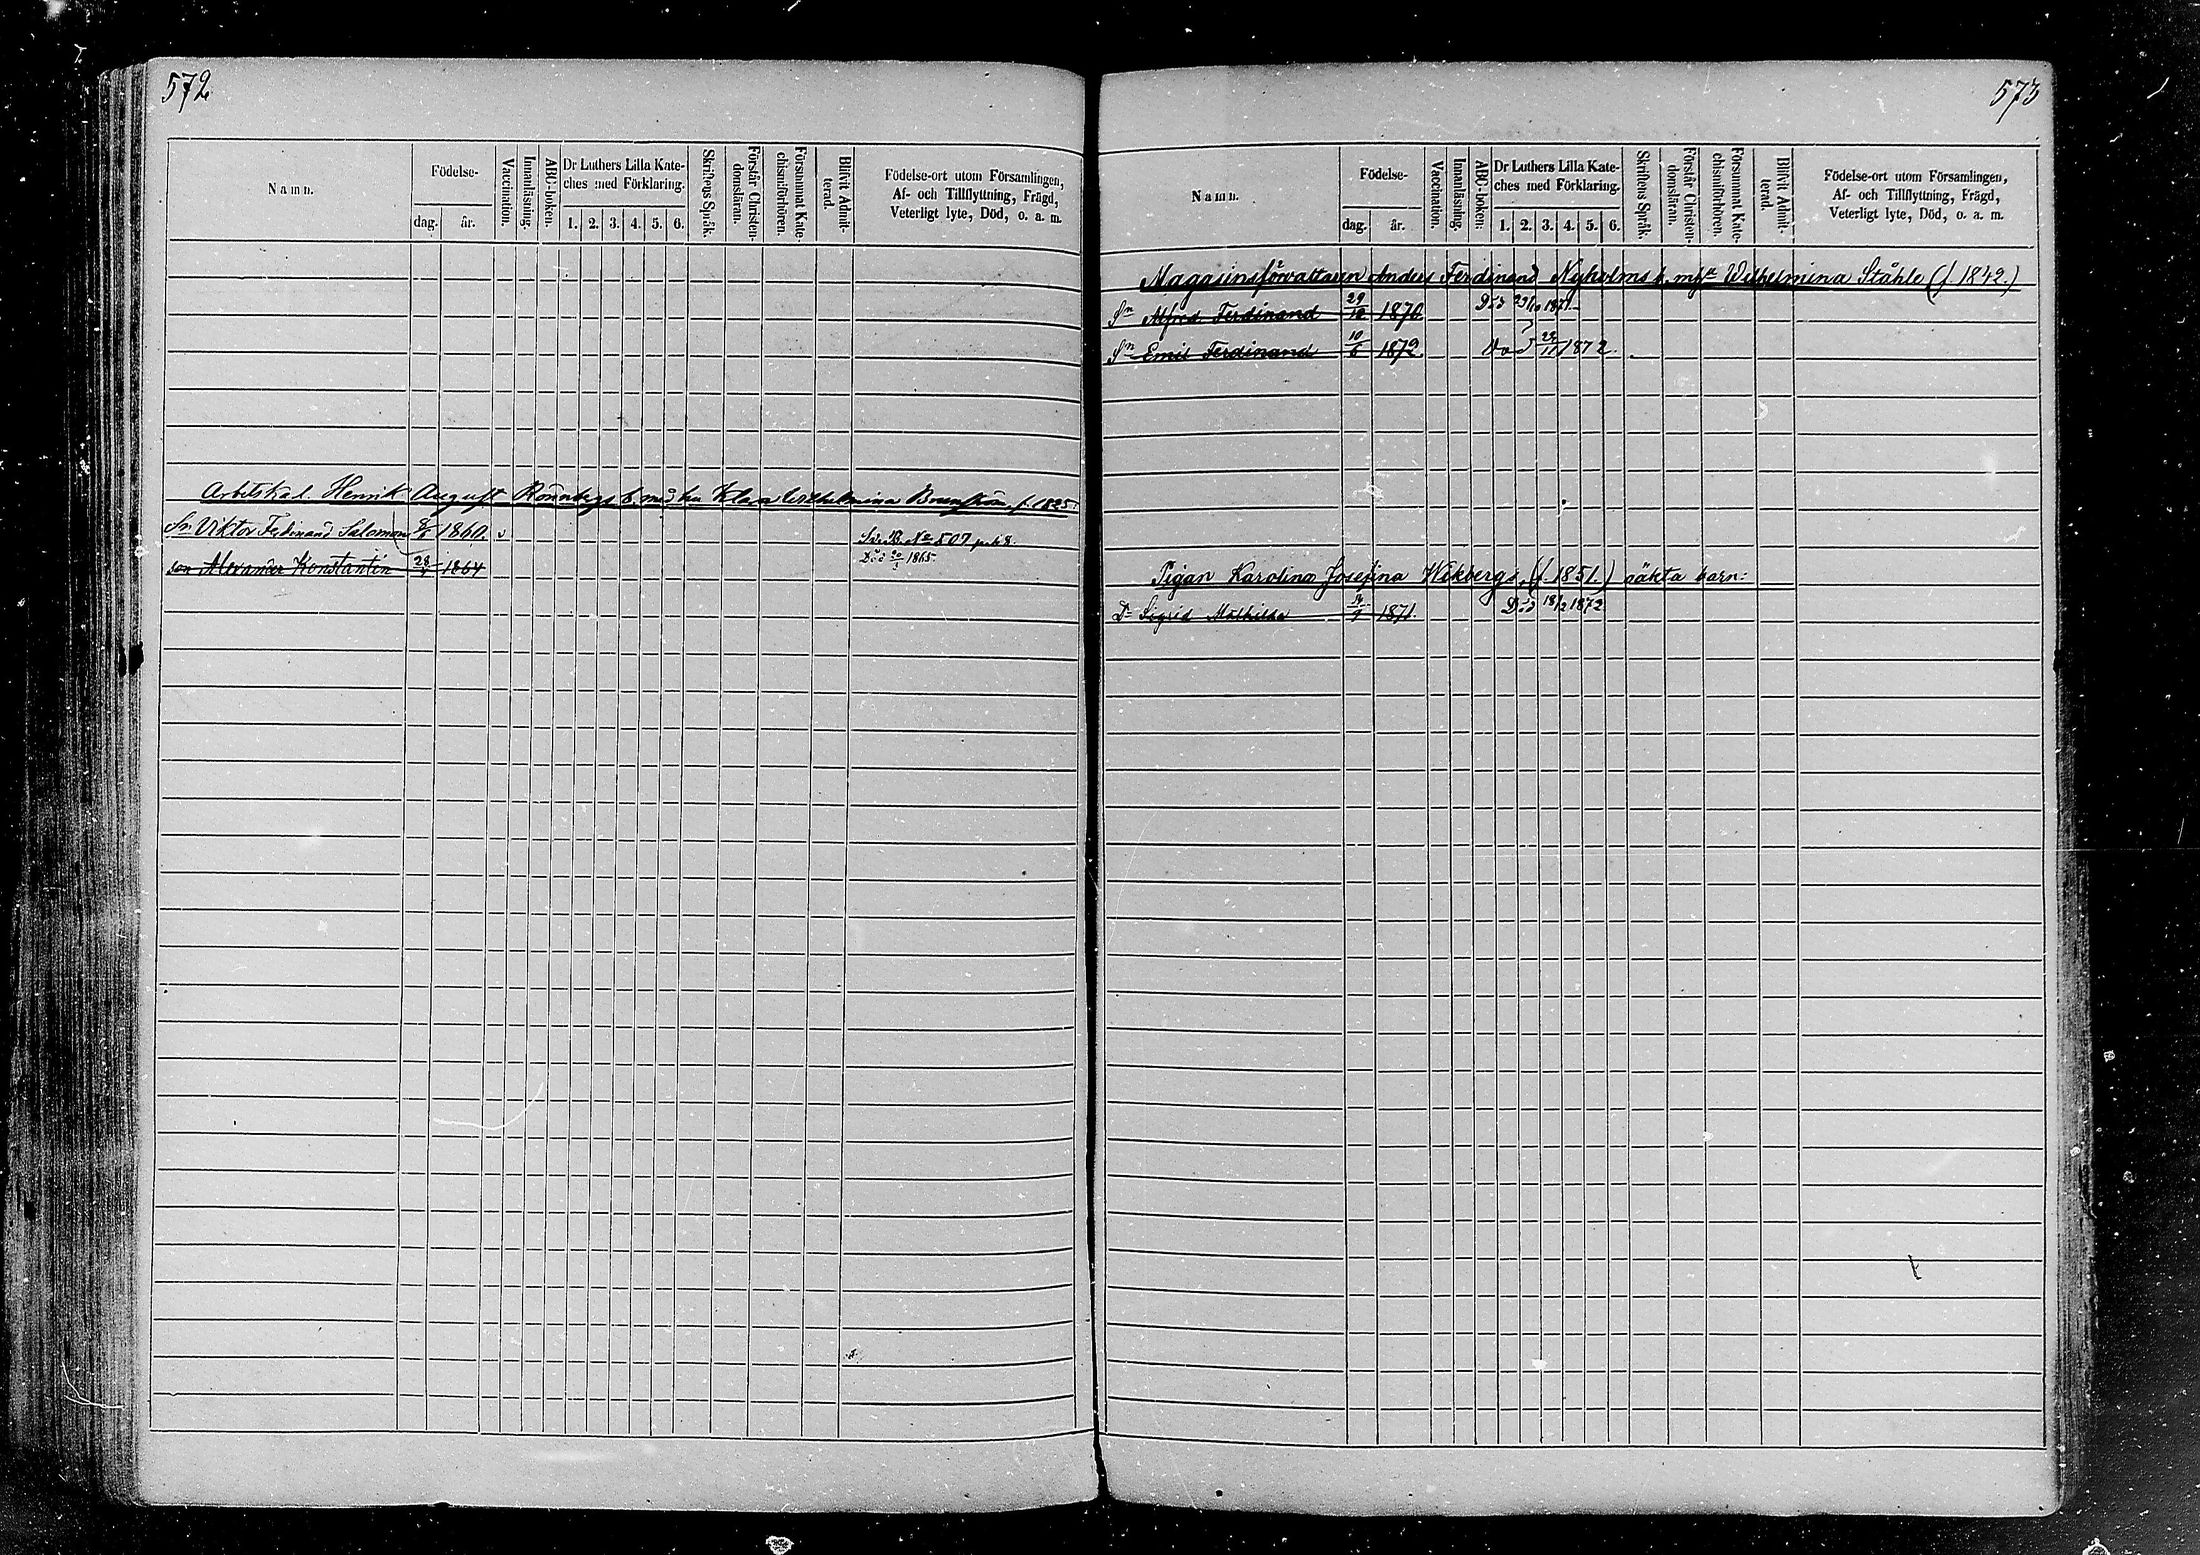 572
Namn.
Födelse-
dag.
år.
Vaccination.
Innanläsning.
ABC-boken.
Dr Luthers Lilla Kate-
ches med Förklaring.
1. 2. 3. 4. 5. 6.
Skriftens Språk.
Förstår Christen-
domsläran.
Försummat Kate-
chismiförhören.
Blifvit Admit-
terad.
Födelse-ort utom Församlingen,
Af- och Tillflyttning, Frägd,
Veterligt lyte, Död, o. a. m.
Arbetskal. Henrik August Rönnbergs b. med hu Klara Wilhelmina f. 1825.
Sn Viktor Ferdinand Salomon 1860. v
Se B. No 507 pub 8.
son Alexander Konstantin 1864 Död 1865.
573
Namn.
Födelse-
dag.
år.
Vaccination.
Innanläsning.
ABC-boken:
Dr Luthers Lilla Kate-
ches med Förklaring.
1. 2. 3. 4. 5. 6.
Skriftens Språk.
Förstår Christen-
domsläran.
Försummat Kate-
chismiförhören.
Blifvit Admit-
terad.
Födelse-ort utom Församlingen,
Af- och Tillflyttning, Frägd,
Veterligt lyte, Död, o. a. m.
Magasinsförvaltaren Anders Ferdinand Nyholms b. m. h. Wilhelmina Ståhle (f. 1842.)
Sn Alfred Ferdinand 29/12 1870. Död 23/10 1871.
Sn Emil Ferdinand 10/6 1872. Död 22/11 1872.
Pigan Karolina Josefina Wikbergs, (f. 1851.) oäkta barn:
Dr Sigrid Mathilda 1871. Död 18/2 1872